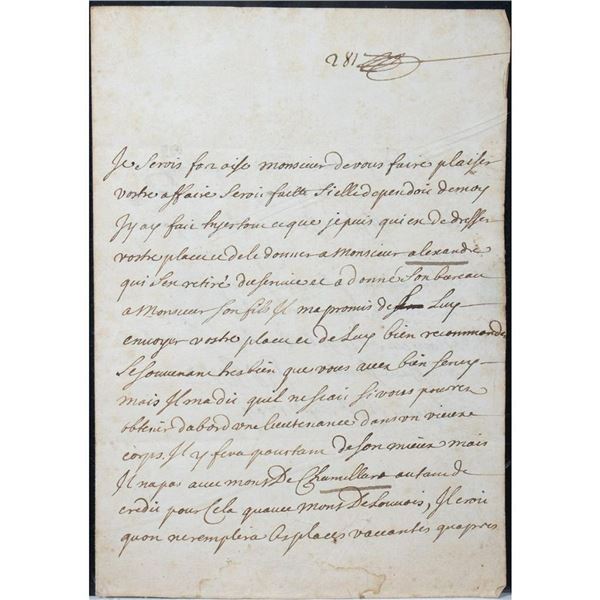 281
Je serois fort aise monsieur de vous faire plaisir
vostre affaire seroit faitte si elle dependoit de moy
Jy ay fait hyer tout ce que je puis qui est de dresser
vostre placet et de le donner a Monsieur alexandre
qui s'est retiré du service et a donné son bureau
a Monsieur son fils Il ma promis de Luy
envoyer vostre placet et de Luy bien recommander
Se souvenant tres bien que vous avez bien servy
mais Il ma dit quil ne scait si vous pourrez
obtenir dabord une lieutenance dans un vieux
corps. Il y fera pourtant de son mieux mais
Il na pas avec monsr De Chamillart autant de
credit pour Cela quavec monsr De Louvois, Il croit
quon ne remplira les places vaccantes quapres